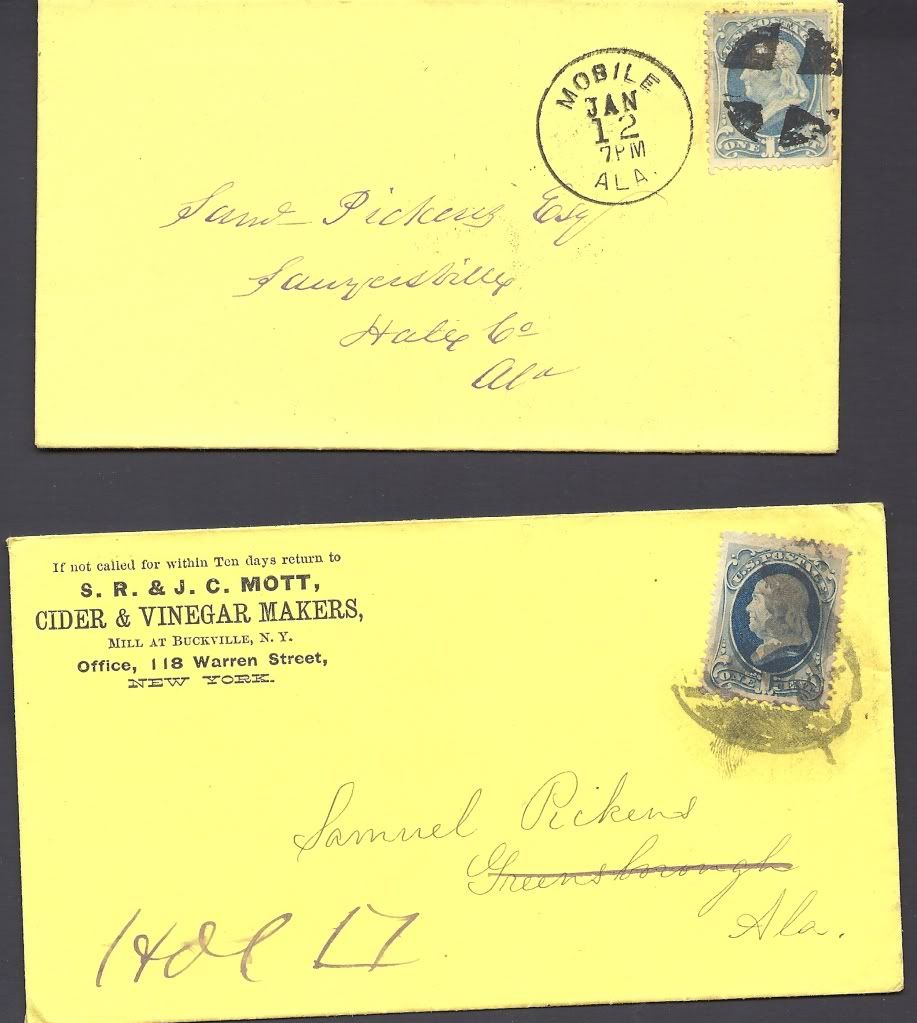 U.S. POSTAGE
ONE 1 CENT
MOBILE
JAN
12
7PM
ALA.
Saml Pickens Esq
Sawyersville
Hale Co
Ala
If not called for within Ten days return to
S. R. & J. C. MOTT,
CIDER & VINEGAR MAKERS,
MILL AT BUCKVILLE, N. Y.
Office, 118 Warren Street,
NEW YORK.
U.S. POSTAGE
ONE 1 CENT
Samuel Pikens
Greensborough
Ala.